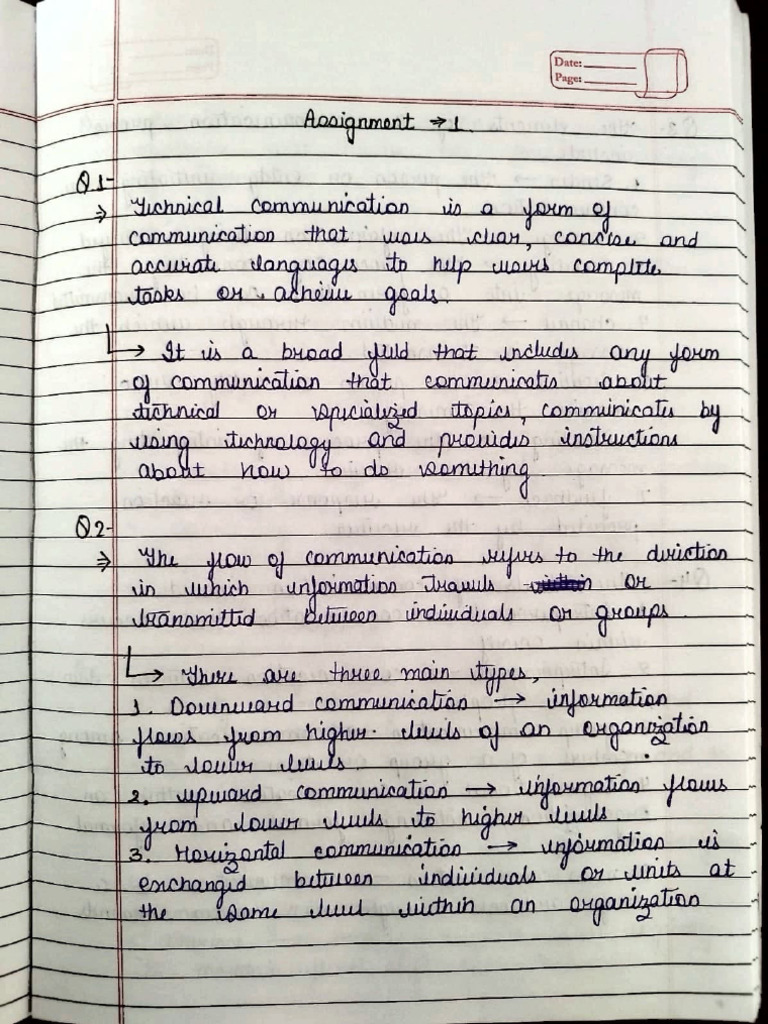 Date:
Page:
Assignment → 1.
Q1-
⇒ Technical communication is a form of
communication that uses clear, concise and
accurate languages to help users complete
tasks or achieve goals.
↳ It is a broad field that includes any form
of communication that communicates about
technical or specialized topics, communicates by
using technology and provides instructions
about how to do something
Q2-
⇒ The flow of communication refers to the direction
in which information Travels or
transmitted between individuals or groups
↳ There are three main types,
1. Downward communication → information
flows from higher levels of an organization
to lower levels.
2. upward communication → information flows
from lower levels to higher levels.
3. Horizontal communication → information is
exchanged between individuals or units at
the same level within an organization